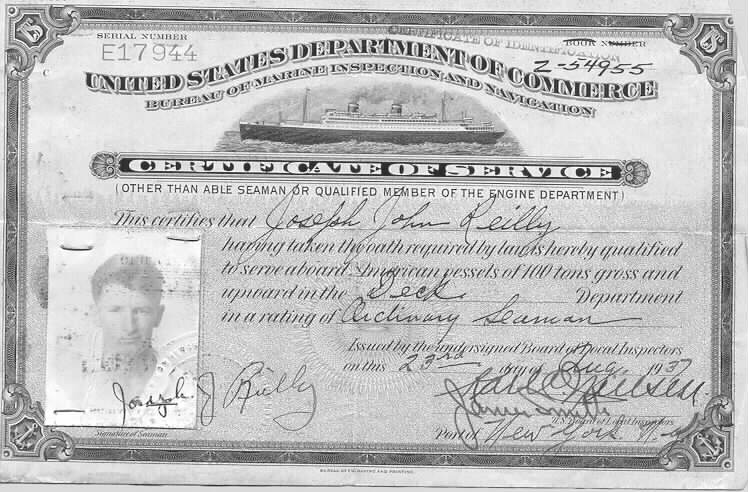 SERIAL NUMBER
E17944
CERTIFICATE OF IDENTIFICATION
BOOK NUMBER
Z-54955
UNITED STATES DEPARTMENT OF COMMERCE
BUREAU OF MARINE INSPECTION AND NAVIGATION
CERTIFICATE OF SERVICE
(OTHER THAN ABLE SEAMAN OR QUALIFIED MEMBER OF THE ENGINE DEPARTMENT)
This certifies that Joseph John Reilly
having taken the oath required by law is hereby qualified
to serve aboard American vessels of 100 tons gross and
upward in the Deck Department
in a rating of Ordinary Seaman
Issued by the undersigned Board of Local Inspectors
on this 23rd day of Aug. 1937
James Smith
U.S. Board of Local Inspectors
Port of New York N.Y.
Joseph J Reilly
Signature of Seaman
BUREAU OF ENGRAVING AND PRINTING